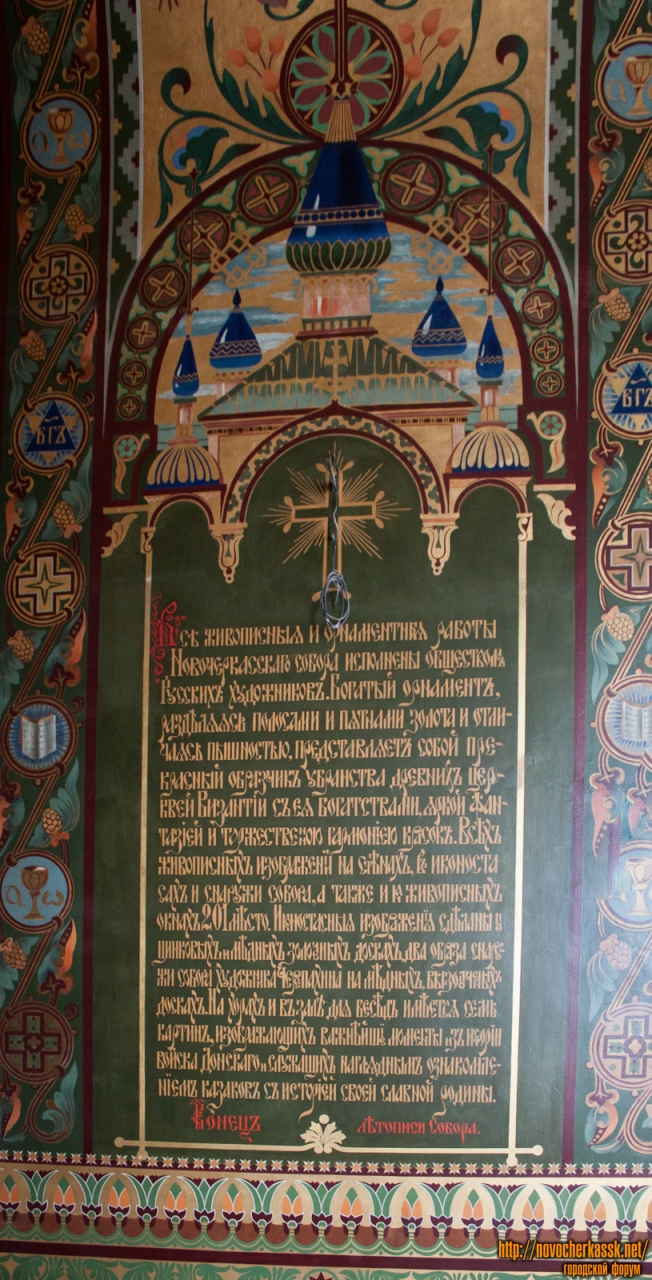 Всѣ живописныя и орнаментныя работы
Новочеркасскаго собора исполнены обществомъ
Русскихъ художниковъ. Богатый орнаментъ,
раздѣляяся полосами и пятнами золота и отли-
чаясь пышностью, представляетъ собой пре-
красный образчикъ убранства древнихъ цер-
квей Византіи съ ея богатствами, яркой фан-
тазіей и торжественою гармоніею красокъ. Всѣхъ
живописныхъ изображеній на стѣнахъ, въ иконоста
сахъ и снаружи собора, а также и 10 живописныхъ
окнахъ 201 мѣсто. Иконостасныя изображенія сдѣланы на
цинковыхъ и мѣдныхъ золочныхъ доскахъ, два образа снару
жи собора художника Черпахина на мѣдныхъ вызолоченыхъ
доскахъ. На хорахъ и въ залѣ для бесѣдъ имѣется семь
картинъ, изображающихъ важнѣйшіе моменты изъ исторіи
войска Донскаго и служащихъ нагляднымъ ознакомле-
ніемъ казаковъ съ исторіей своей славной родины.
Конецъ лѣтописи Собора.
БГЪ
БГЪ
http://novocherkassk.net/
городской форум